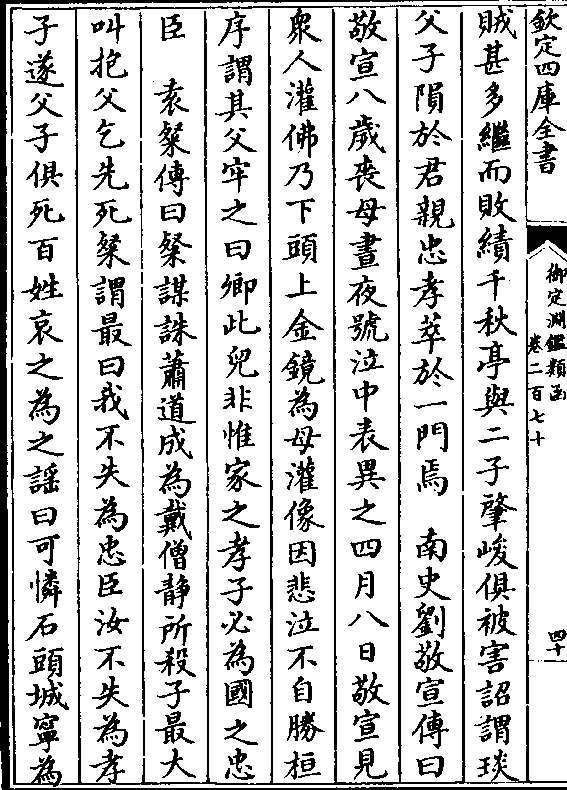 欽定四庫全書
御定淵鑑類函
卷二百七十
四十
賊甚多繼而敗績千秋亭與二子肇峻俱被害詔謂琰
父子隕於君親忠孝萃於一門焉　南史劉敬宣傳曰
敬宣八歲喪母晝夜號泣中表異之四月八日敬宣見
衆人灌佛乃下頭上金鏡為母灌像因悲泣不自勝桓
序謂其父牢之曰卿此兒非惟家之孝子必為國之忠
臣　袁粲傳曰粲謀誅蕭道成為戴僧静所殺子最大
叫抱父乞先死粲謂最曰我不失為忠臣汝不失為孝
子遂父子俱死百姓哀之為之謡曰可憐石頭城寧為